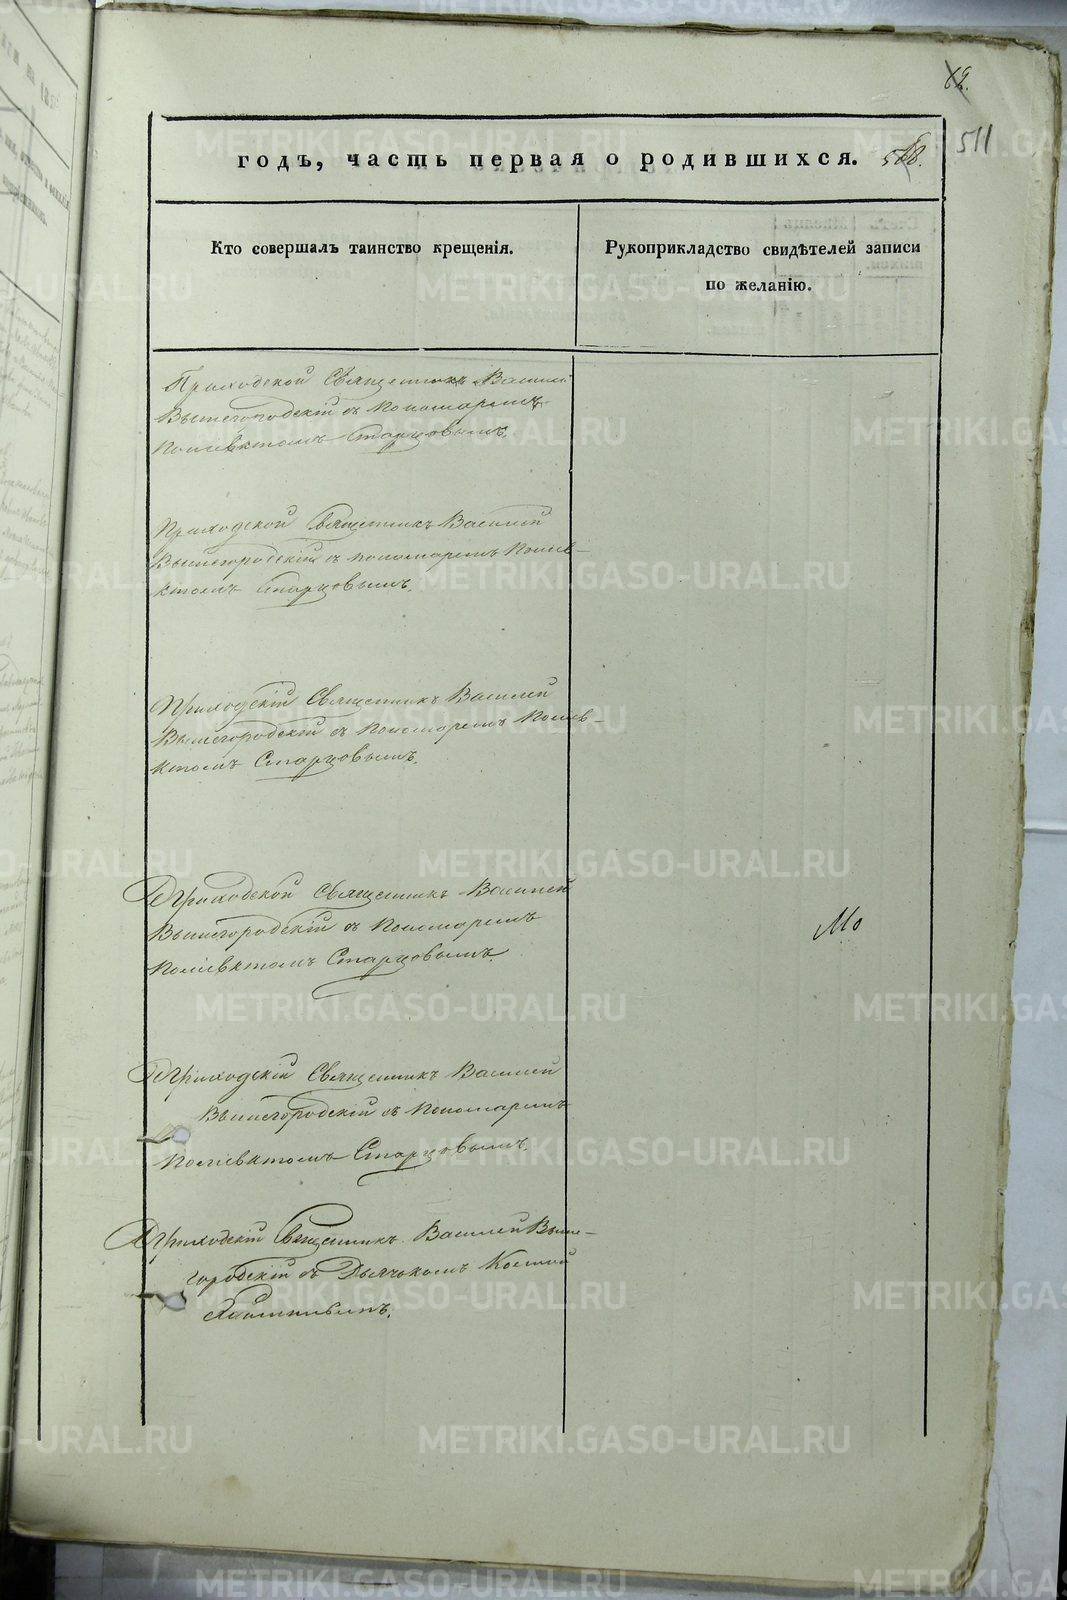 62.
511
годъ, часть первая о родившихся. 508.
Кто совершалъ таинство крещенія.
Рукоприкладство свидѣтелей записи
по желанію.
Приходской Священникъ Василій
Вышегородскій съ Пономаремъ
Поліевктомъ Старцовымъ.
Приходской Священникъ Василій
Вышегородскій съ пономаремъ Поліев-
ктомъ Старцовымъ.
Приходскій Священникъ Василій
Вышегородскій съ Пономаремъ Поліев-
ктомъ Старцовымъ.
Приходской Священникъ Василій
Вышегородскій съ Пономаремъ
Поліевктомъ Старцовымъ.
Мо
Приходскій Священникъ Василій
Вышегородскій съ Пономаремъ
Поліевктомъ Старцовымъ.
Приходскій Священникъ Василій Выше-
городскій съ Дьячкомъ
METRIKI.GASO-URAL.RU